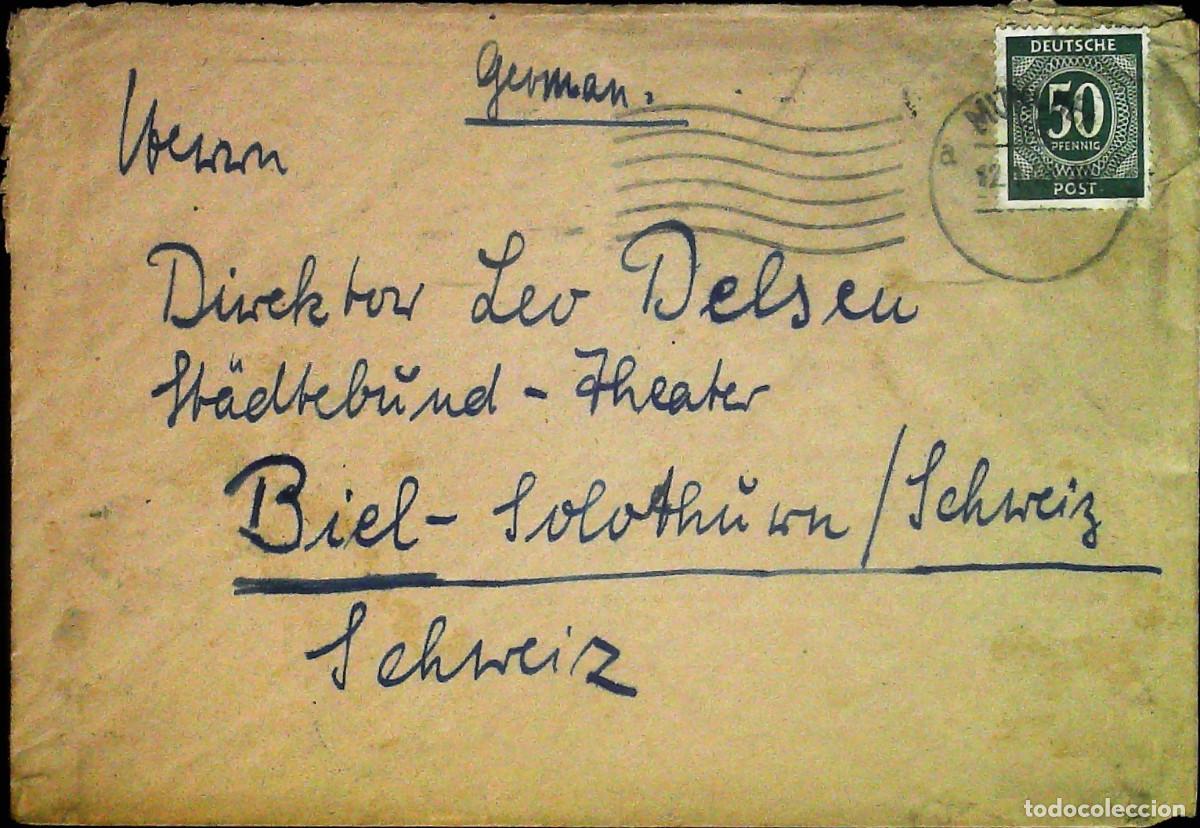 German.
DEUTSCHE
50
PFENNIG
POST
12
Herrn
Direktor Leo Delsen
Städtebund - Theater
Biel - Solothurn / Schweiz
Schweiz
todocoleccion